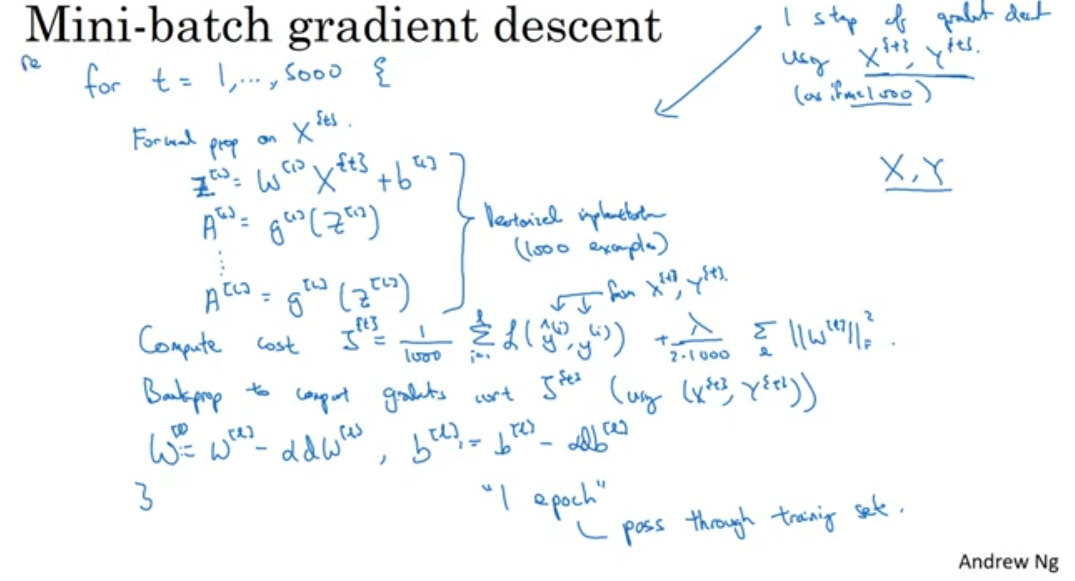 Mini-batch gradient descent
1 step of gradient descent
using X^{t}, Y^{t}.
(as if m=1000)
X, Y
for t = 1,...,5000 {
Forward prop on X^{t}.
Z^[1] = W^[1] X^{t} + b^[1]
A^[1] = g^[1](Z^[1])
⋮
A^[L] = g^[L](Z^[L])
Vectorized implementation
(1000 examples)
from X^{t}, Y^{t}.
Compute cost J^{t} = 1/1000 Σ_{i=1}^{l} L(ŷ^(i), y^(i)) + λ/(2·1000) Σ_l ||W^[l]||_F^2.
Backprop to comput gradients wrt J^{t} (using (X^{t}, Y^{t}))
W^[l] := W^[l] - αdW^[l], b^[l] := b^[l] - αdb^[l]
}
"1 epoch"
pass through training set.
Andrew Ng